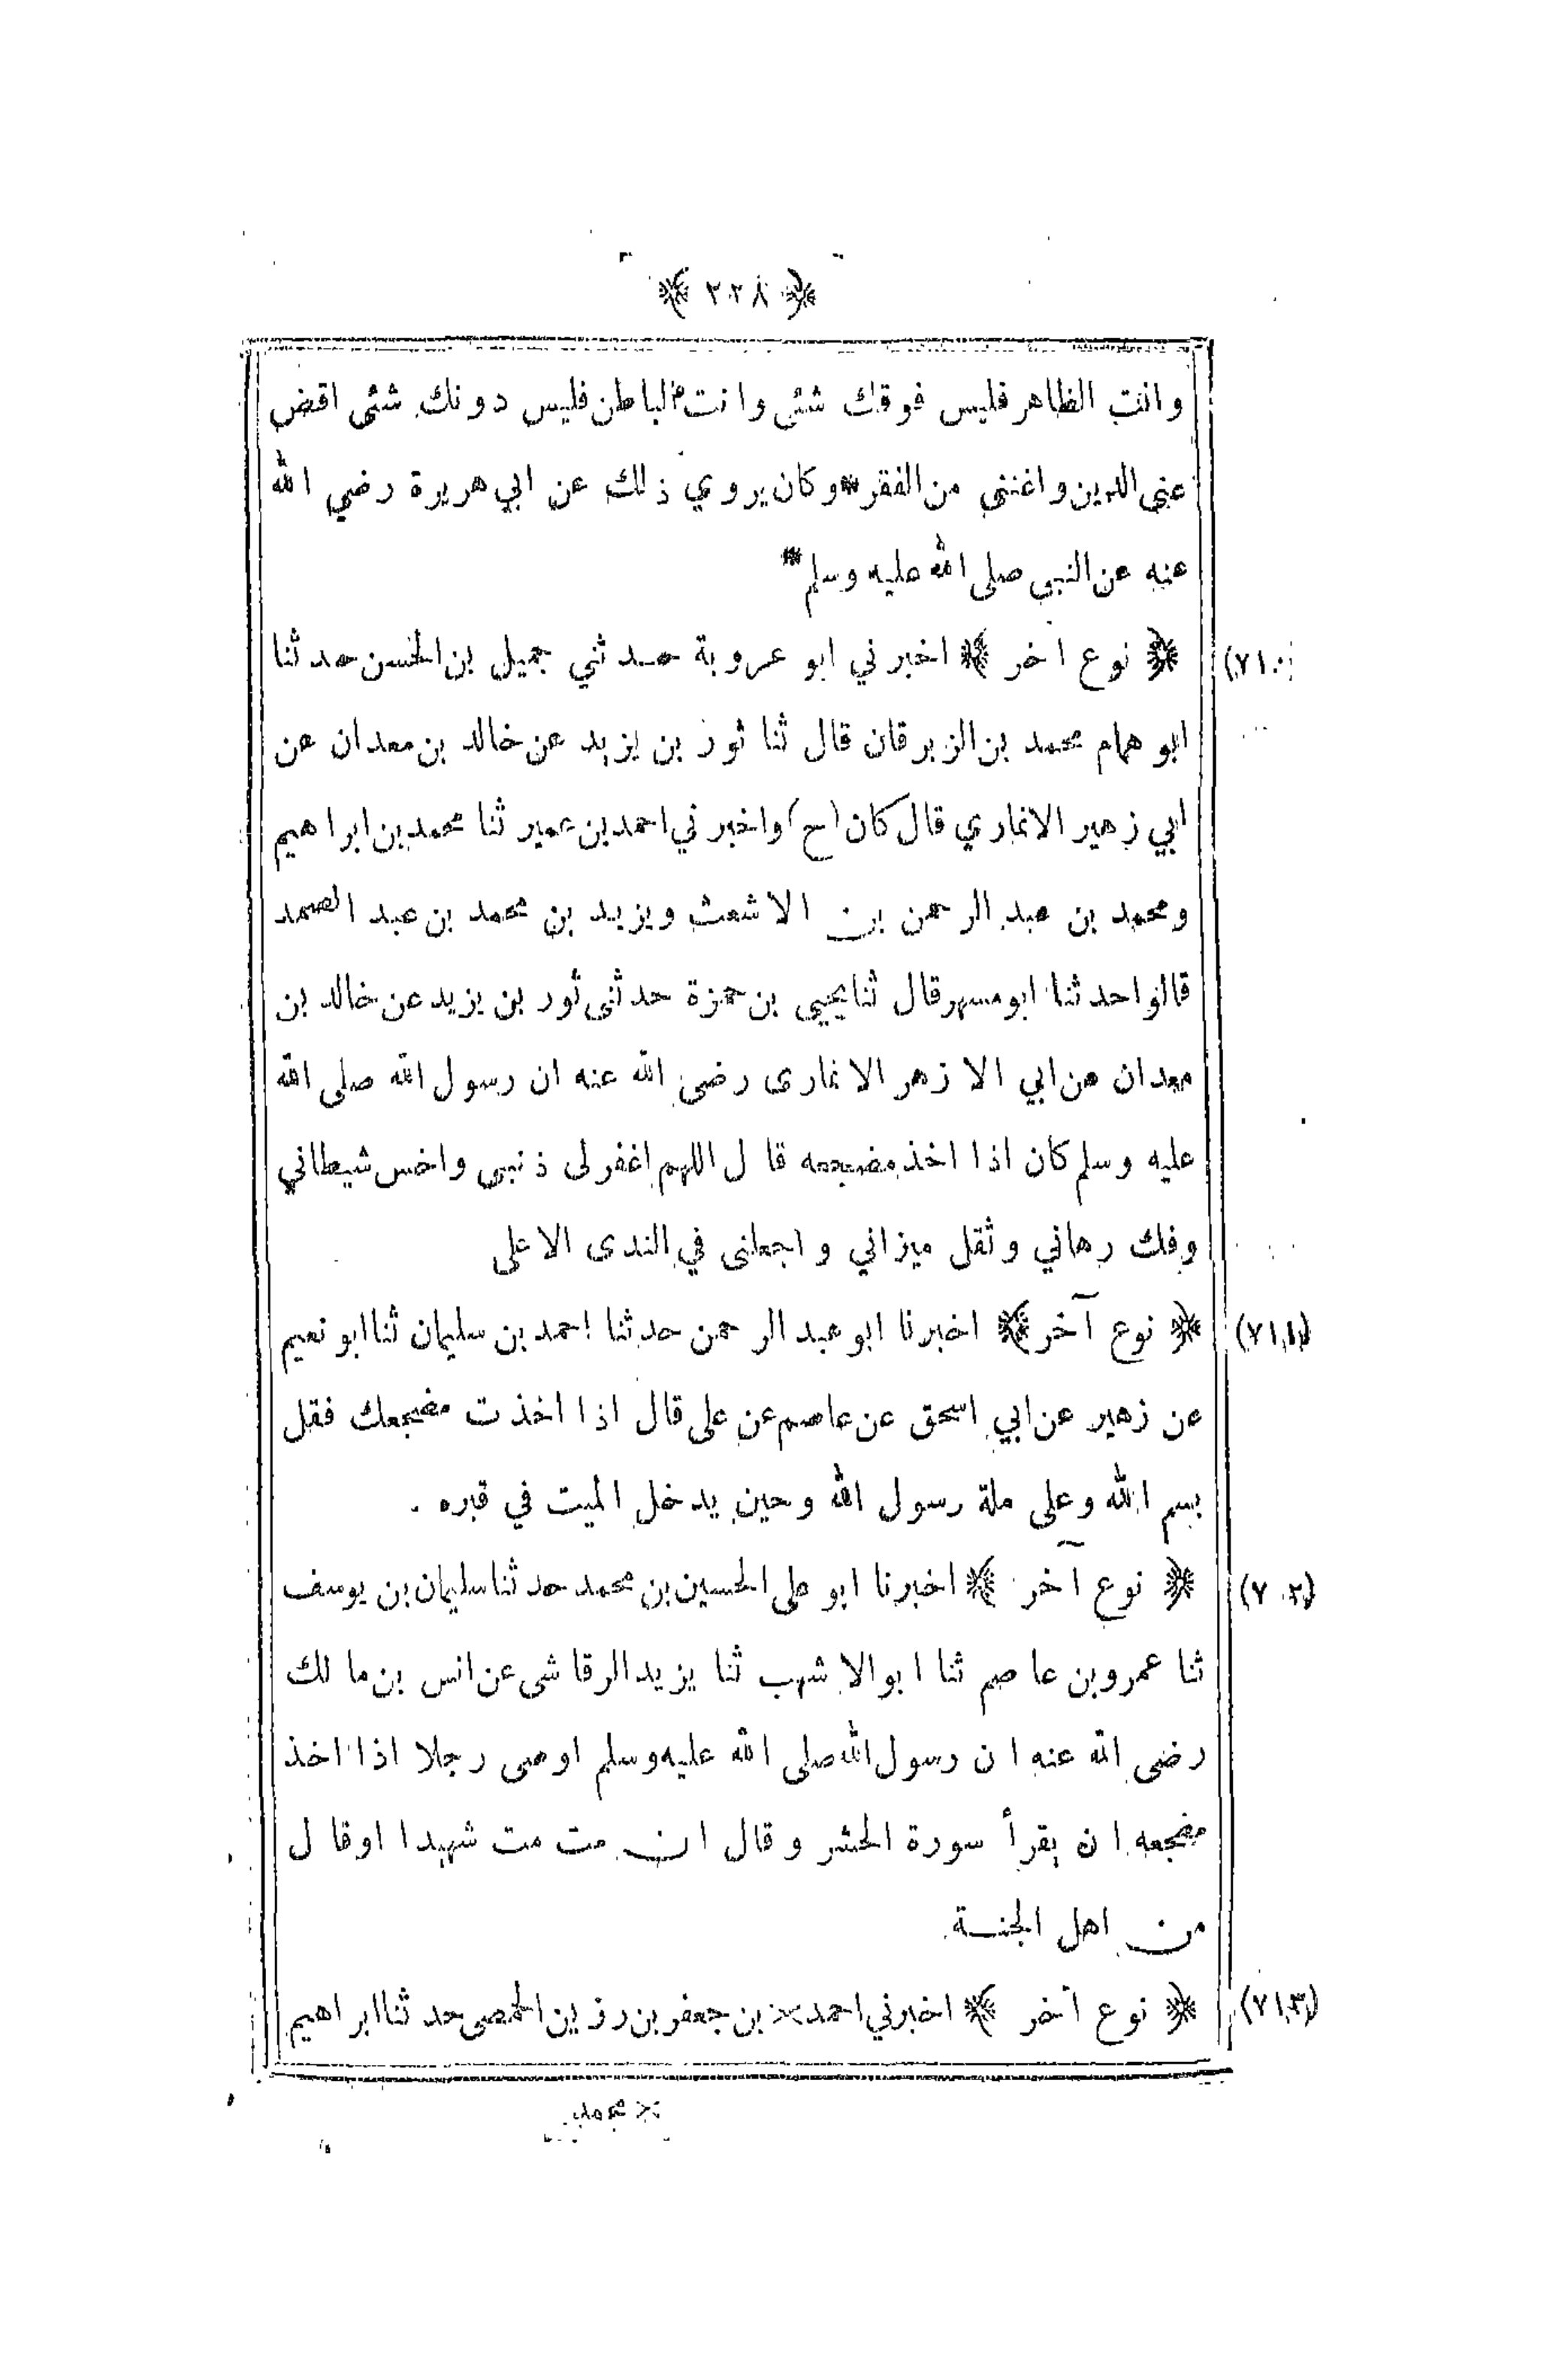 ﴿ ٢٢٨ ﴾
وانت الظاهر فليس فوقك شئى وانت الباطن فليس دونك شئى اقض
عنى الدين واغننى من الفقر * وكان يروي ذلك عن ابي هريرة رضي الله
عنه عن النبى صلى الله عليه وسلم *
(٧١٠) ﴿ نوع آخر ﴾ اخبرني ابو عروبة حدثني جميل بن الحسن حدثنا
ابو همام محمد بن الزبرقان قال ثنا ثور بن يزيد عن خالد بن معدان عن
ابي زهير الانماري قال كان (ح) واخبرني احمد بن عمير ثنا محمد بن ابراهيم
ومحمد بن عبد الرحمن بن الاشعث ويزيد بن محمد بن عبد الصمد
قالوا حدثنا ابو مسهر قال ثنا يحيي بن حمزة حدثنى ثور بن يزيد عن خالد بن
معدان عن ابي الازهر الانمارى رضى الله عنه ان رسول الله صلى الله
عليه وسلم كان اذا اخذ مضجعه قال اللهم اغفر لى ذنبى واخس شيطاني
وفك رهاني وثقل ميزاني واجعلنى في الندى الاعلى
(٧١١) ﴿ نوع آخر ﴾ اخبرنا ابو عبد الرحمن حدثنا احمد بن سليمان ثنا ابو نعيم
عن زهير عن ابي اسحق عن عاصم عن على قال اذا اخذت مضجعك فقل
بسم الله وعلى ملة رسول الله وحين يدخل الميت في قبره .
(٧٠٢) ﴿ نوع آخر ﴾ اخبرنا ابو على الحسين بن محمد حدثنا سليمان بن يوسف
ثنا عمرو بن عاصم ثنا ابو الاشهب ثنا يزيد الرقاشى عن انس بن مالك
رضى الله عنه ان رسول الله صلى الله عليه وسلم اوصى رجلا اذا اخذ
مضجعه ان يقرأ سورة الحشر وقال ان مت مت شهيدا اوقال
من اهل الجنة
(٧١٣) ﴿ نوع آخر ﴾ اخبرني احمد × بن جعفر بن رزين الحمصى حدثنا ابراهيم
× محمد